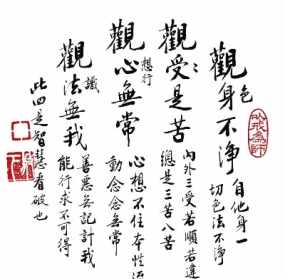 觀身不淨
色
自他身一
切色法不淨
觀受是苦
內外三受若順若違
總是三苦八苦
觀心無常
想行
心想不住本性
動念念無常
觀法無我
識
善惡無記計我
能行求不可得
此四是智慧看破也
以戒為師